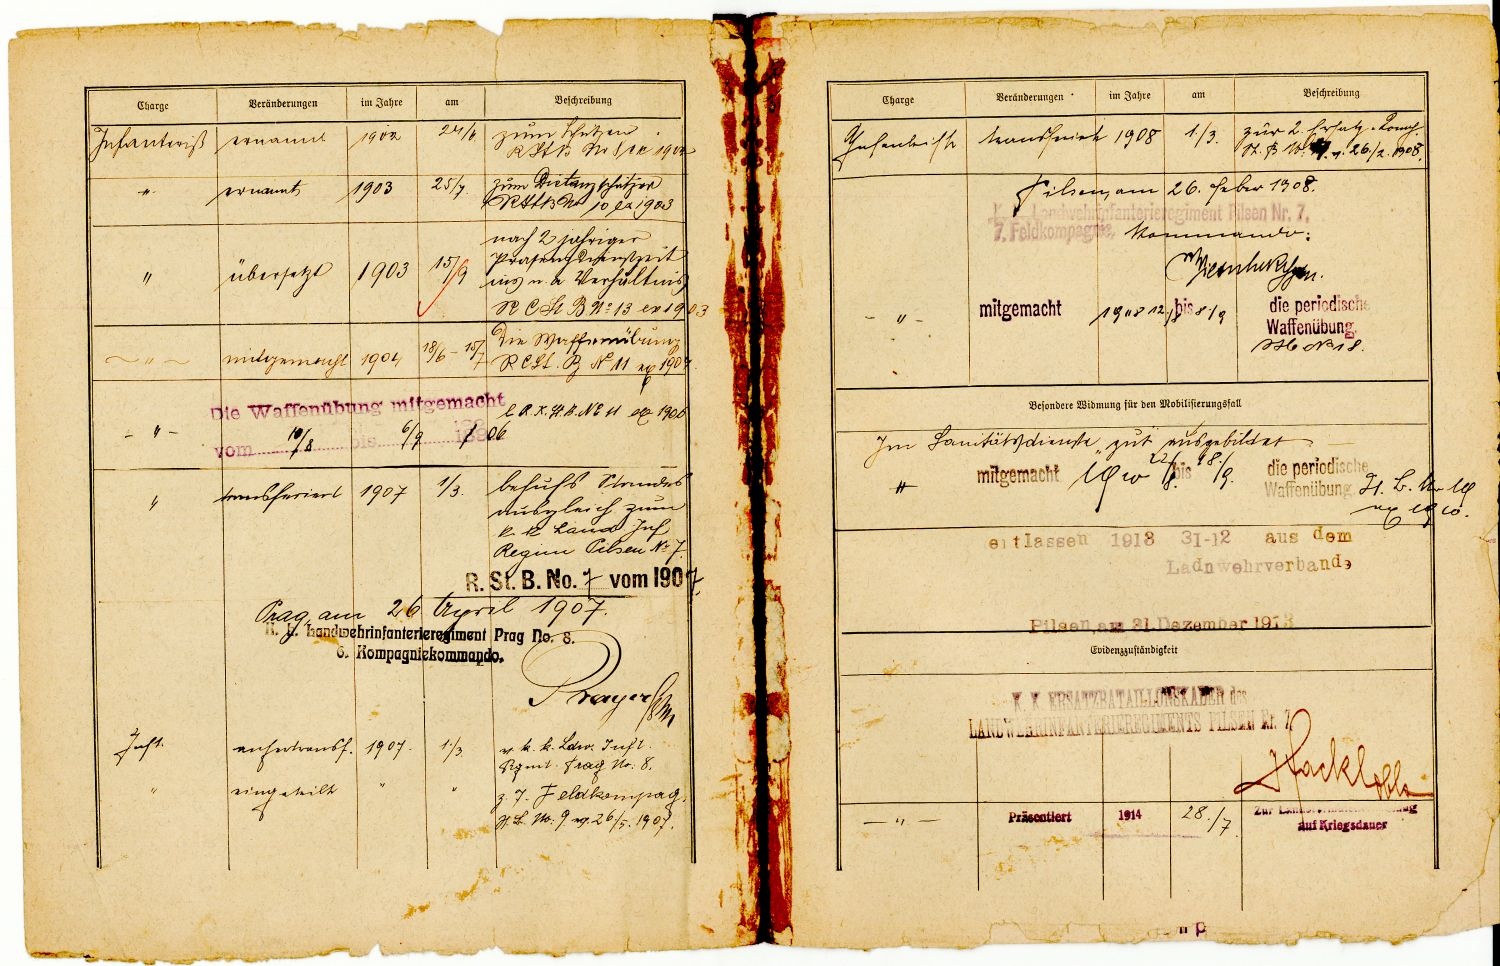 Charge Veränderungen im Jahre am Beschreibung
Infanterist ernannt 1902 zum Schützen
" ernannt 1903 25/7 zum Distanzschätzer
No 10 ex 1903
nach 2 jähriger
Präsenzdienstzeit
" übersetzt 1903 15/9 ins n. a. Verhältnis
No 13 ex 1903
Die Waffenübung
" mitgemacht 1904 18/6 - 15/7 No 11 ex 1904
Die Waffenübung mitgemacht No 11 ex 1906
- " - vom 10/8 bis 6/9 06
" transferiert 1907 1/3. behufs Standes
ausgleich zum
k. k. Landw Inf
Regim Pilsen No 7.
R. St. B. No. 7 vom 1907.
Prag, am 26 April 1907.
K. K. Landwehrinfanterieregiment Prag No. 8.
6. Kompagniekommando.
Inft. anhertransf. 1907. 1/3 v. k. k. Ldw. Inft.
Rgmt. Prag No: 8.
" eingeteilt " " z. 7. Feldkompag.
No: 9 v. 26/5. 1907.
Charge Veränderungen im Jahre am Beschreibung
Infanterist transferirt 1908 1./3. zur 2. Ersatz-Komp.
26/2. 1908.
Pilsen, am 26. Feber 1908.
Landwehrinfanterieregiment Pilsen Nr. 7,
7. Feldkompagnie, Kommando:
- " - mitgemacht 1908 12/8 bis 8/9 die periodische
Waffenübung.
No 18.
Besondere Widmung für den Mobilisierungsfall
Im Sanitätsdienste „gut" ausgebildet
" mitgemacht 1910 22/8. bis 18/9. die periodische
Waffenübung.
ex 1910.
entlassen 1913 31-12 aus dem
Ladnwehrverbande
Pilsen, am 31. Dezember 1913
Evidenzzuständigkeit
K. K. ERSATZBATAILLONSKADER des
LANDWEHRINFANTERIEREGIMENTS PILSEN Nr. 7
- " - Präsentiert 1914 28./7.
auf Kriegsdauer